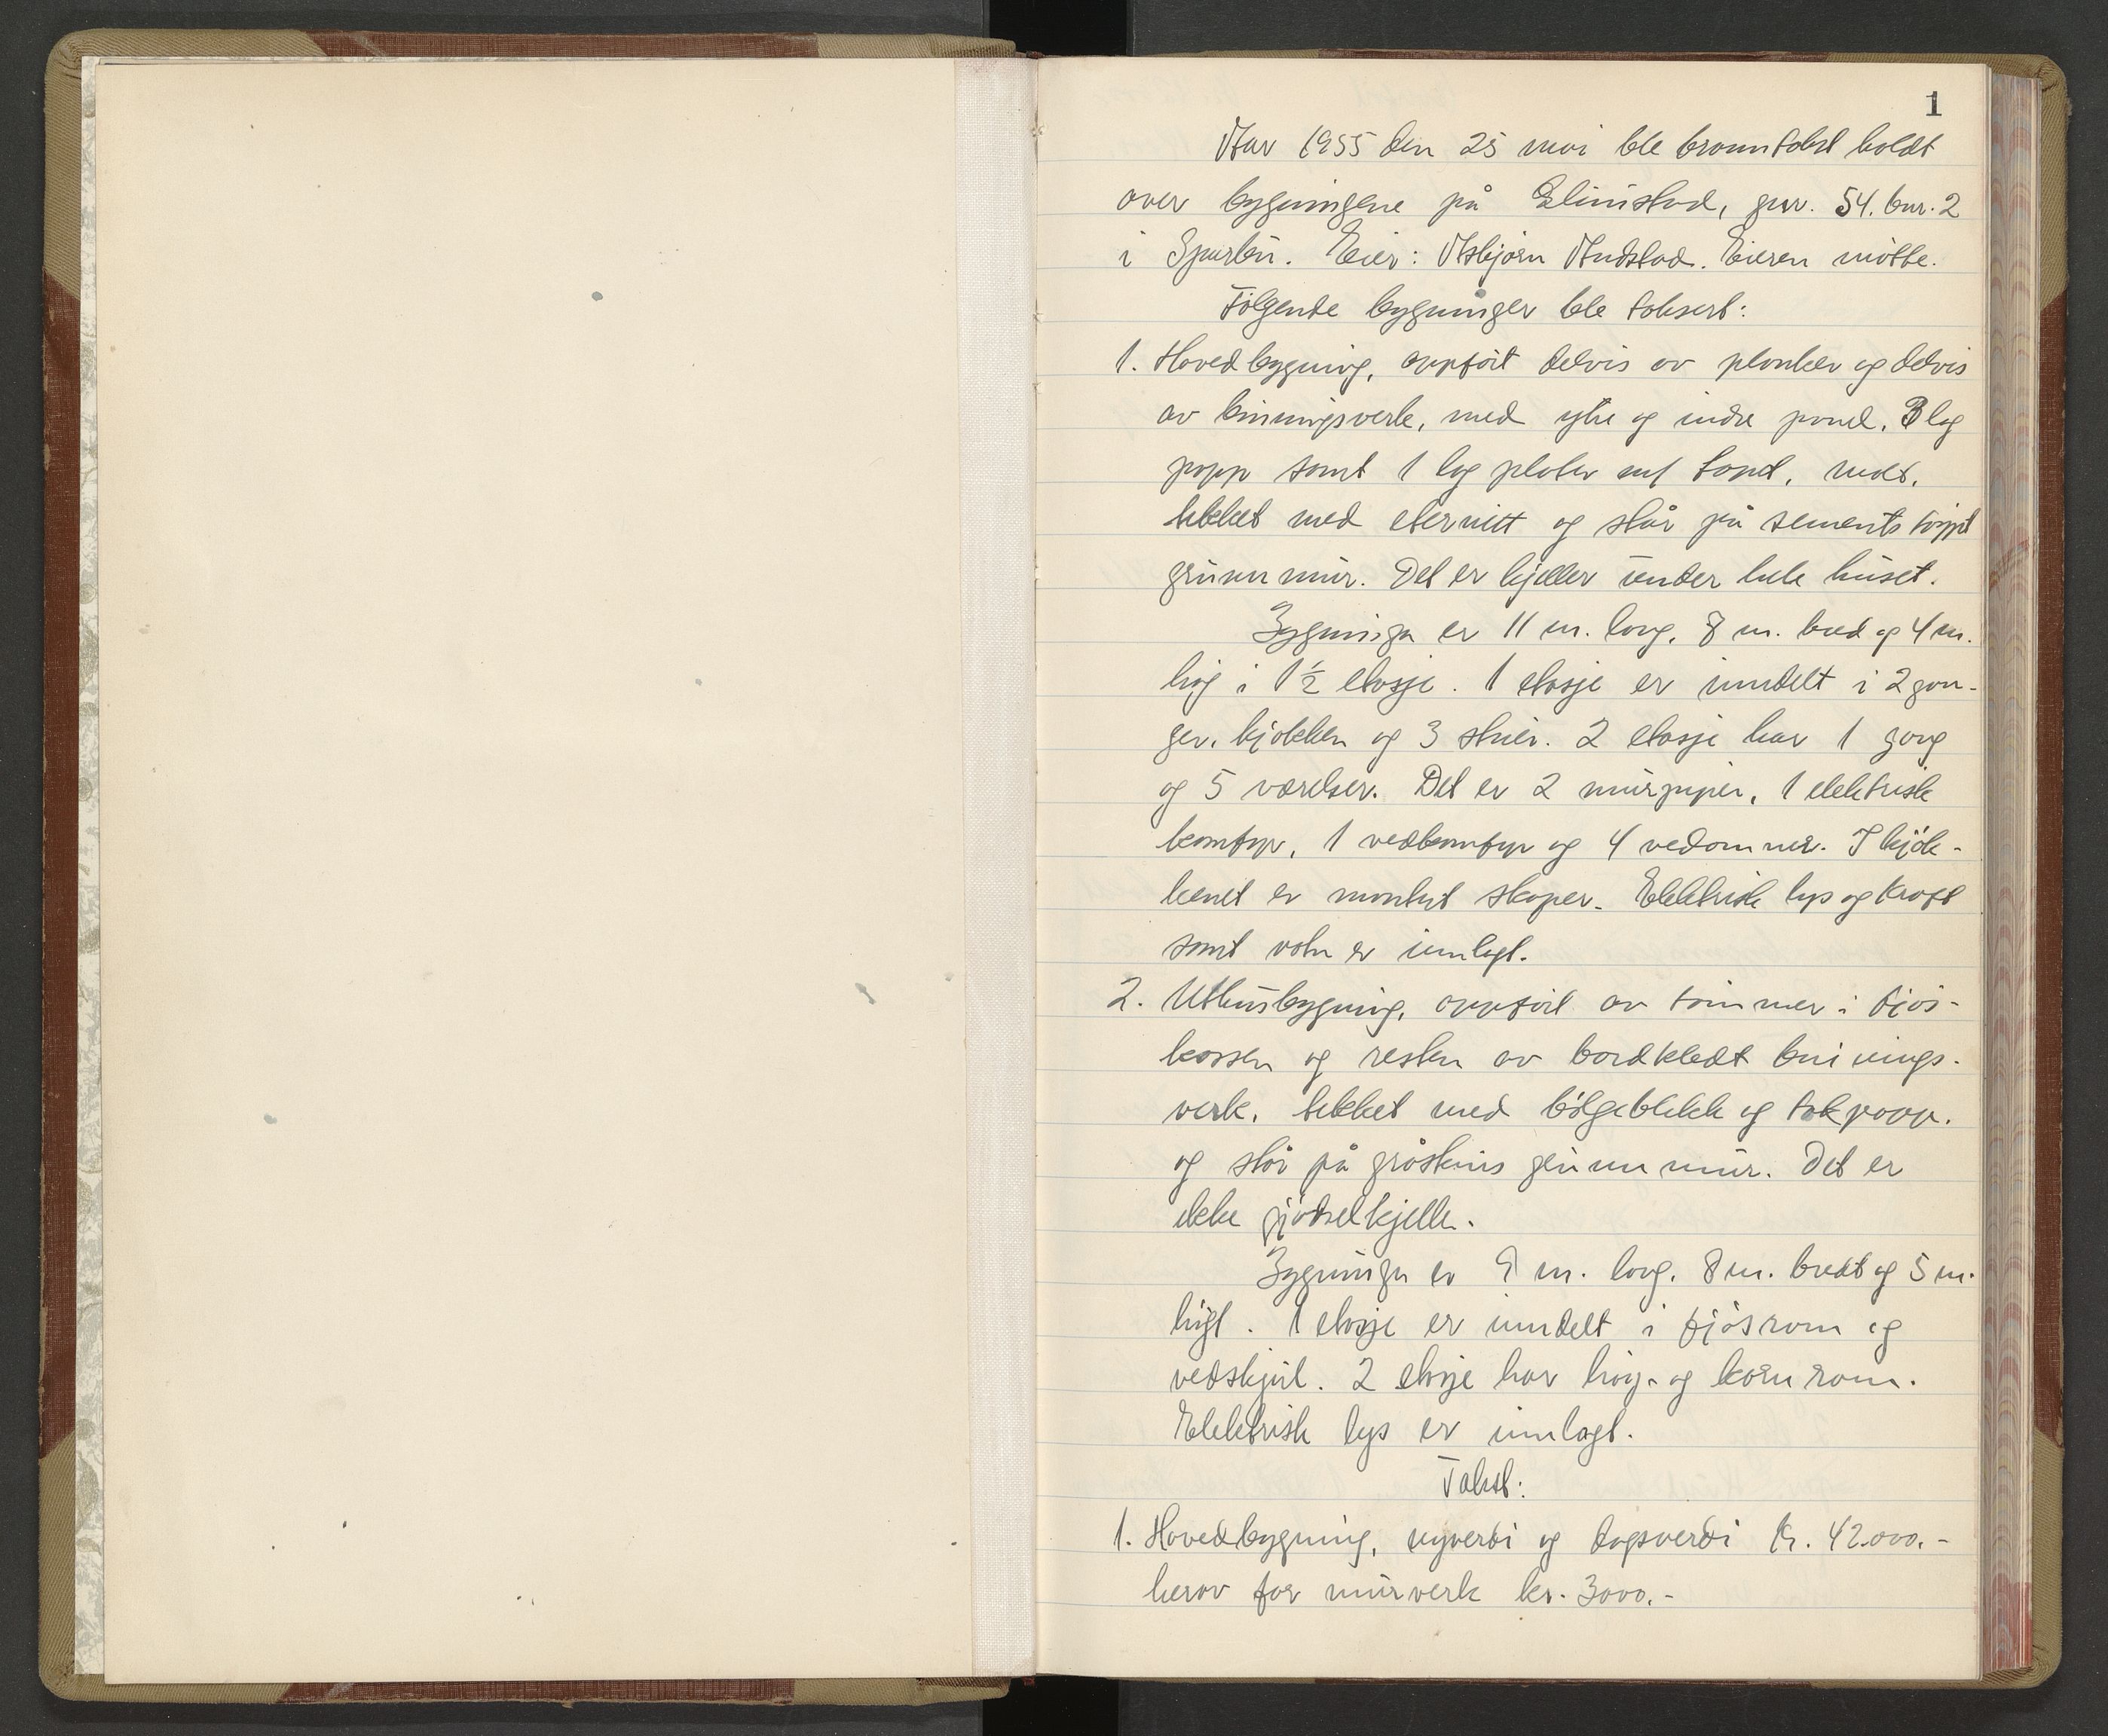 1
Aar 1955 den 25 mai ble branntakst holdt
over bygningene på Elinistad, gnr. 54. bnr. 2
i Sparbu. Eier: Asbjørn Audstad. Eieren møtte.
Følgende bygninger ble taksert:
1. Hovedbygning, oppført delvis av planker og delvis
av binningsverk, med ytre og indre panel, 3 lag
papp samt 1 lag plater m/ tapet,
tekket med eternitt og står på sementstøppt
grunnmur. Det er kjeller under hele huset.
Bygninga er 11 m. lang, 8 m. bred og 4 m.
høg i 1½ etasje. 1 etasje er inndelt i 2 gan-
ger, kjøkken og 3 stuer. 2 etasje har 1 gang
og 5 værelser. Det er 2 murpiper, 1 elektrisk
komfyr, 1 vedkomfyr og 4 vedomner. I kjøk-
kenet er montert skaper. Elektrisk lys og kraft
samt vatn er innlagt.
2. Uthusbygning, oppført av tømmer i fjøs-
kassen og resten av bordkledt binnings-
verk, tekket med bølgeblikk og takpapp.
og står på gråsteins grunnmur. Det er
ikke gjødselkjeller.
Bygninga er 9 m. lang, 8 m. bredt og 5 m.
høgt. 1 etasje er inndelt i fjøsrom og
vedskjul. 2 etasje har høy- og kornrom.
Elektrisk lys er innlagt.
Takst:
1. Hovedbygning, nyverdi og dagsverdi kr. 42.000.-
herav for murverk kr. 3000.-